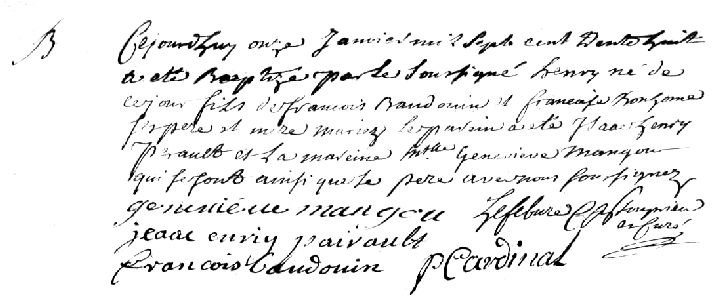 B
Cejourdhuy onze Janvier mil Sept cent trente huit
a eté Baptizé par le Soussigné henry né de
ce jour fils de francois Baudouin et francoise
ses pere et mere mariez le parein a eté Isaac henry
Perault et La mareine Mlle Genevieve Mangou
qui se sont ainsi que le pere avec nous soussignez
genevieve mangou Lefebure
jeaac enriy pairault Curé
francois baudouin P Cardinal